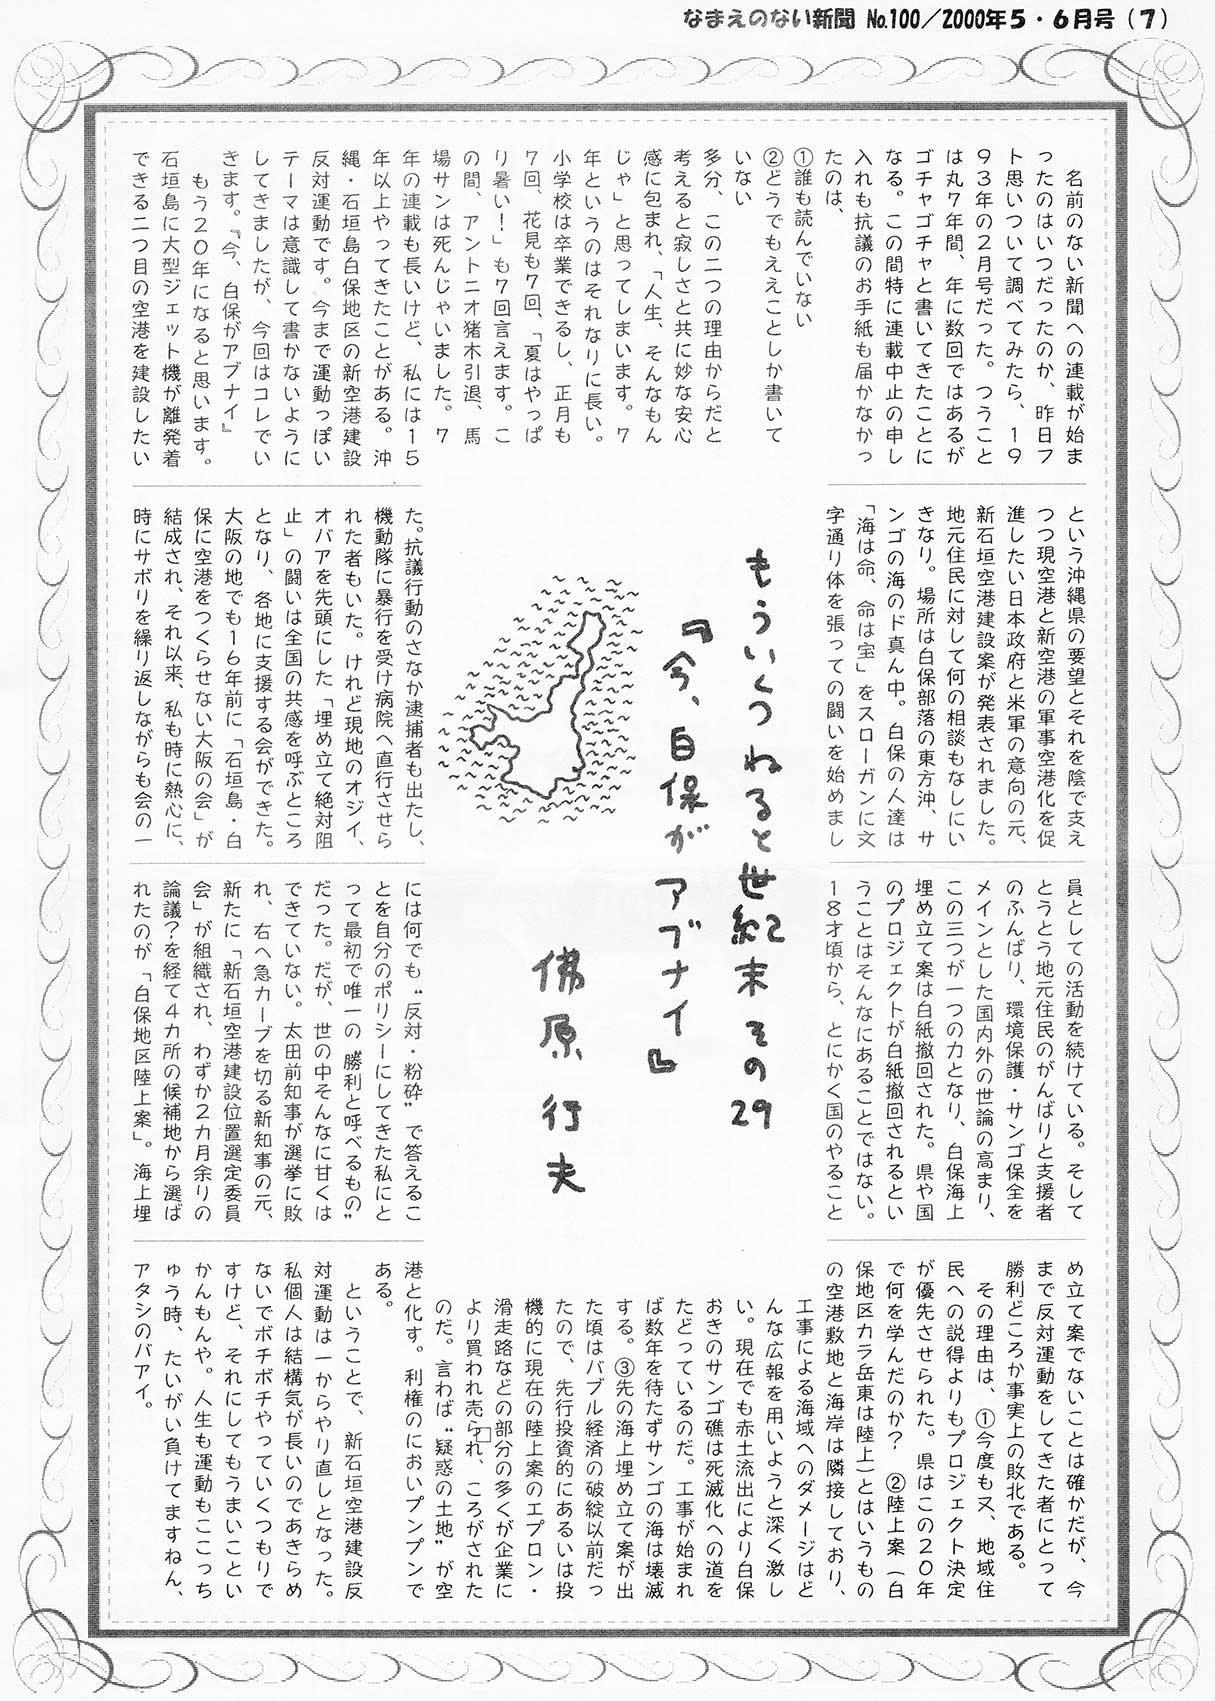 なまえのない新聞 No.100／2000年5・6月号（7）
もういくつねると世紀末 その29
『今、白保がアブナイ』
佛原行夫
名前のない新聞への連載が始ま
ったのはいつだったのか、昨日フ
ト思いついて調べてみたら、19
93年の2月号だった。つうこと
は丸7年間、年に数回ではあるが
ゴチャゴチャと書いてきたことに
なる。この間特に連載中止の申し
入れも抗議のお手紙も届かなかっ
たのは、
①誰も読んでいない
②どうでもええことしか書いて
いない
多分、この二つの理由からだと
考えると寂しさと共に妙な安心
感に包まれ、「人生、そんなもん
じゃ」と思ってしまいます。7
年というのはそれなりに長い。
小学校は卒業できるし、正月も
7回、花見も7回、「夏はやっぱ
り暑い！」も7回言えます。こ
の間、アントニオ猪木引退、馬
場サンは死んじゃいました。7
年の連載も長いけど、私には15
年以上やってきたことがある。沖
縄・石垣島白保地区の新空港建設
反対運動です。今まで運動っぽい
テーマは意識して書かないように
してきましたが、今回はコレでい
きます。『今、白保がアブナイ』
もう20年になると思います。
石垣島に大型ジェット機が離発着
できる二つ目の空港を建設したい
という沖縄県の要望とそれを陰で支え
つつ現空港と新空港の軍事空港化を促
進したい日本政府と米軍の意向の元、
新石垣空港建設案が発表されました。
地元住民に対して何の相談もなしにい
きなり。場所は白保部落の東方沖、サ
ンゴの海のド真ん中。白保の人達は
「海は命、命は宝」をスローガンに文
字通り体を張っての闘いを始めまし
た。抗議行動のさなか逮捕者も出たし、
機動隊に暴行を受け病院へ直行させら
れた者もいた。けれど現地のオジイ、
オバアを先頭にした「埋め立て絶対阻
止」の闘いは全国の共感を呼ぶところ
となり、各地に支援する会ができた。
大阪の地でも16年前に「石垣島・白
保に空港をつくらせない大阪の会」が
結成され、それ以来、私も時に熱心に、
時にサボリを繰り返しながらも会の一
員としての活動を続けている。そして
とうとう地元住民のがんばりと支援者
のふんばり、環境保護・サンゴ保全を
メインとした国内外の世論の高まり、
この三つが一つの力となり、白保海上
埋め立て案は白紙撤回された。県や国
のプロジェクトが白紙撤回されるとい
うことはそんなにあることではない。
18才頃から、とにかく国のやること
には何でも〝反対・粉砕〟で答えるこ
とを自分のポリシーにしてきた私にと
って最初で唯一の〝勝利と呼べるもの〟
だった。だが、世の中そんなに甘くは
できていない。太田前知事が選挙に敗
れ、右へ急カーブを切る新知事の元、
新たに「新石垣空港建設位置選定委員
会」が組織され、わずか2カ月余りの
論議？を経て4カ所の候補地から選ば
れたのが「白保地区陸上案」。海上埋
め立て案でないことは確かだが、今
まで反対運動をしてきた者にとって
勝利どころか事実上の敗北である。
その理由は、①今度も又、地域住
民への説得よりもプロジェクト決定
が優先させられた。県はこの20年
で何を学んだのか？ ②陸上案（白
保地区カラ岳東は陸上）とはいうもの
の空港敷地と海岸は隣接しており、
工事による海域へのダメージはど
んな広報を用いようと深く激し
い。現在でも赤土流出により白保
おきのサンゴ礁は死滅化への道を
たどっているのだ。工事が始まれ
ば数年を待たずサンゴの海は壊滅
する。③先の海上埋め立て案が出
た頃はバブル経済の破綻以前だっ
たので、先行投資的にあるいは投
機的に現在の陸上案のエプロン・
滑走路などの部分の多くが企業に
より買われ売られ、ころがされた
のだ。言わば〝疑惑の土地〟が空
港と化す。利権のにおいプンプンで
ある。
ということで、新石垣空港建設反
対運動は一からやり直しとなった。
私個人は結構気が長いのであきらめ
ないでボチボチやっていくつもりで
すけど、それにしてもうまいことい
かんもんや。人生も運動もここっち
ゅう時、たいがい負けてますねん、
アタシのバアイ。